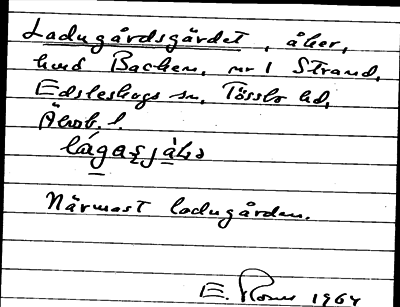 Ladugårdsgärdet, åker,
hmd Backen, nr 1 Strand,
Edsleskogs sn, Tössbo hd,
Älvsb. l.
Närmast ladugården.
E. 1964